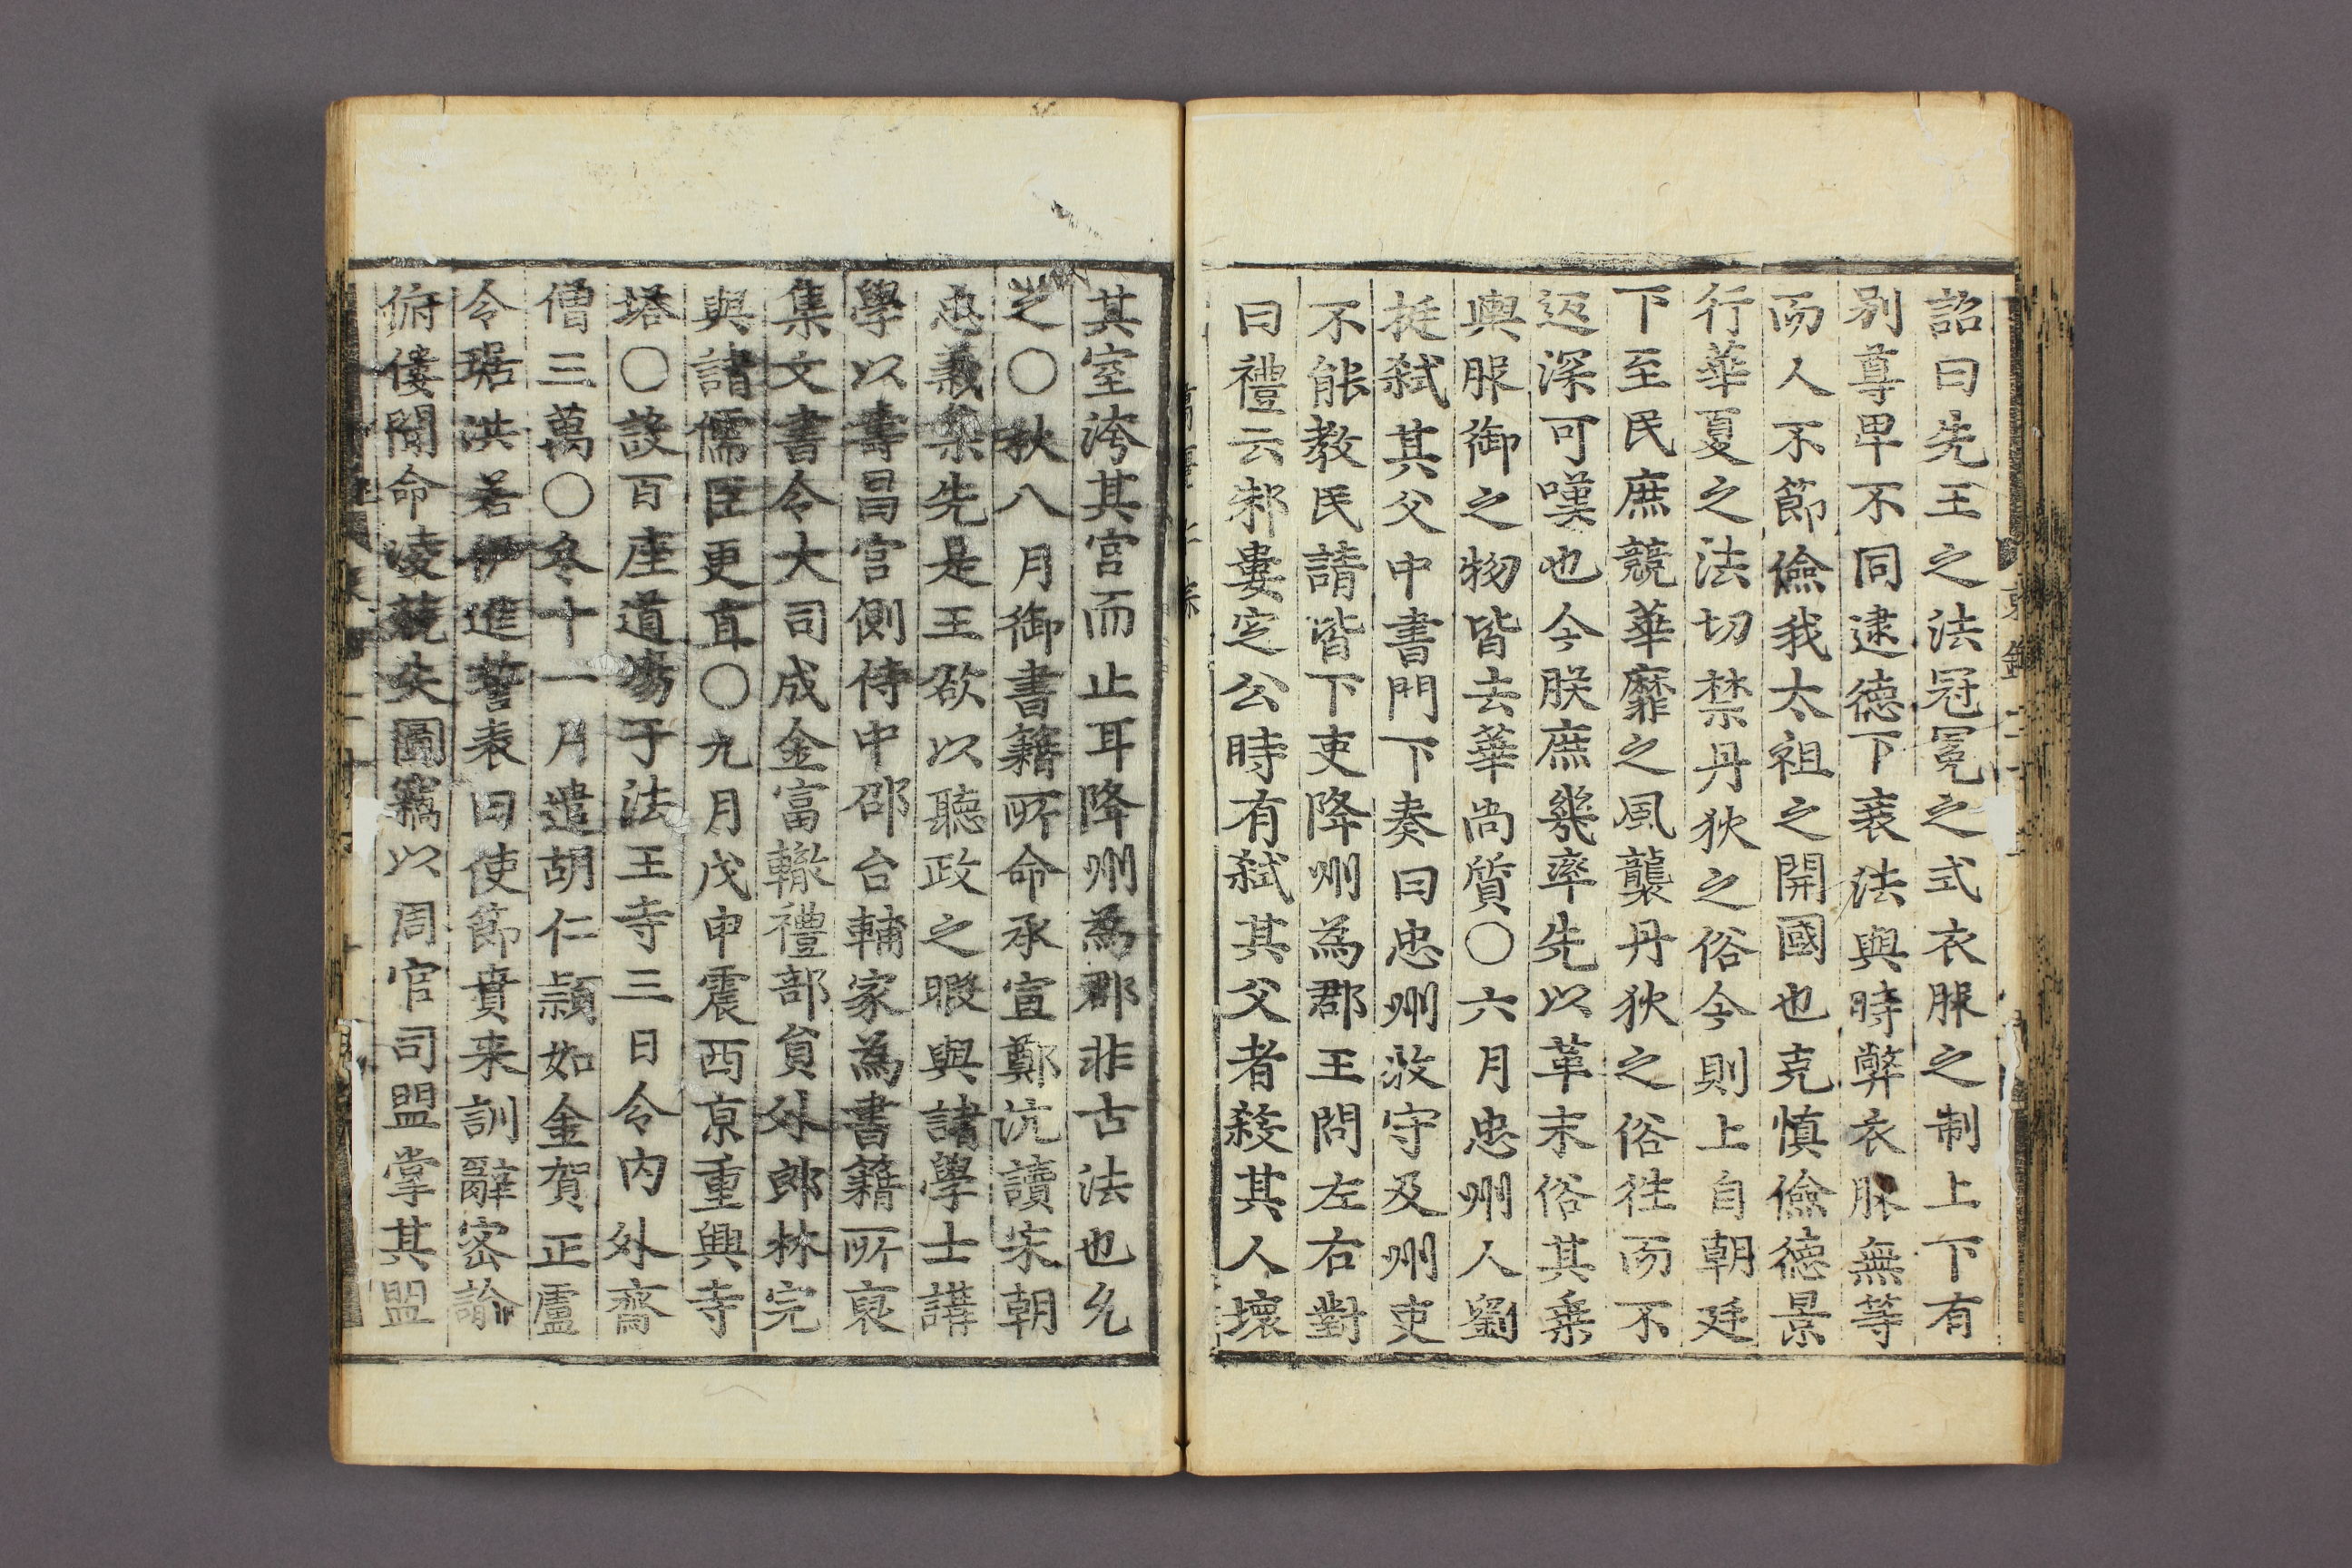 詔曰先王之法冠冕之式衣服之制上下有
別尊卑不同逮德下衰法與時弊衣服無等
而人不節儉我太祖之開國也克慎儉德景
行華夏之法切禁丹狄之俗今則上自朝廷
下至民庶競華靡之風襲丹狄之俗徃而不
返深可嘆也今朕庶幾率先以革末俗其乗
輿服御之物皆去華尚質〇六月忠州人劉
挺弑其父中書門下奏曰忠州牧守及州吏
不能教民請皆下吏降州為郡王問左右對
曰禮云邾婁定公時有弑其父者殺其人壞
其室洿其宮而止耳降州為郡非古法也允
之〇秋八月御書籍所命承宣鄭沆讀宋朝
忠義集先是王欲以聽政之暇與諸學士講
學以壽昌宮側侍中邵台輔家為書籍所裒
集文書令大司成金富轍禮部貟外郎林完
與諸儒臣更直〇九月戊申震西京重興寺
塔〇設百座道塲于法王寺三日令內外齋
僧三萬〇冬十一月遣胡仁穎如金賀正盧
令琚洪若伊進誓表曰使節賁来訓辭密諭
俯僂聞命凌兢失圖竊以周官司盟掌其盟